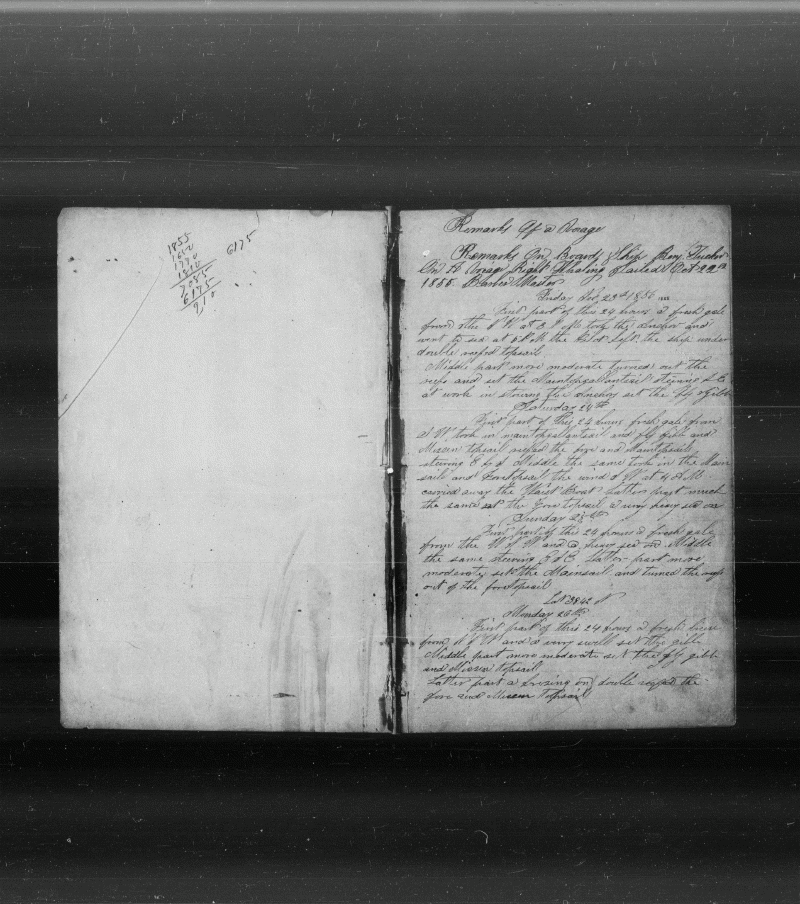 1855
1650
1770
1810
7085
6175
910
6175
Remarks Of a Voiage
Remarks On Board Ship Benj Tucker
On A Voiage Right Whaling Sailed Oct 22nd
1855 Barber Master
Friday Nov 23rd 1855
First part of this 24 hours a fresh gale
from the N W at 8 A M took the Anchor and
went to sea at 6 P M the Pilot left the ship under
double reefed topsail
Middle part more moderate turned out the
reefs and set the Maintopgallantsail stering S E
at work in stowing the Anchors set the fly gibb
Saturday 24th
First part of this 24 hours fresh gale from
N W took in maintopgallantsail and fly gibb and
Missen topsail reefed the fore and Maintopsails
stering E S E Middle the same took in the Main
sail and Foretopsail the wind at 4 A M
carried away the Waist Boat Latter part much
the same set the Fore topsail a very heavy sea on
Sunday 25th
First part of this 24 hours a fresh gale
from the W N W and a heavy sea on Middle
the same stering E S E Latter part more
moderate set the Mainsail and turned the reefs
out of the foretopsail
Lat 38 42 N
Monday 26th
First part of this 24 hours a fresh brese
from N N W and a very swell set the gibb
Middle part more moderate set the fly gibb
and Missen topsail
Latter part a brising on double reefed the
fore and Missen topsail